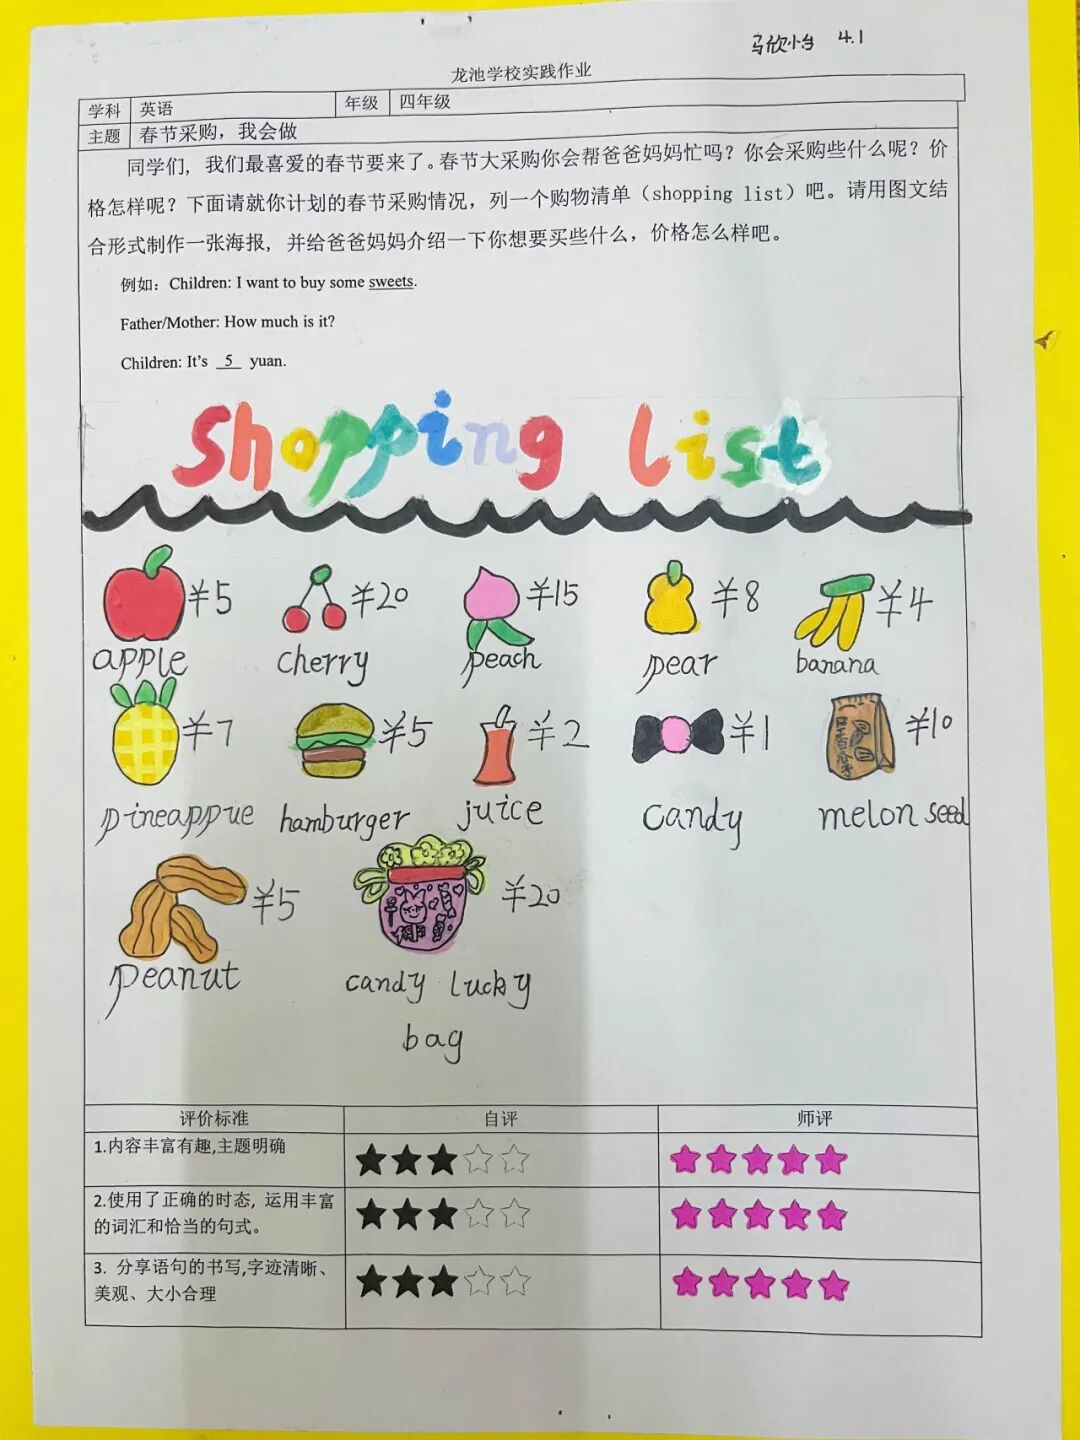 马欣怡 4.1
龙池学校实践作业
学科 英语 年级 四年级
主题 春节采购，我会做
同学们，我们最喜爱的春节要来了。春节大采购你会帮爸爸妈妈忙吗？你会采购些什么呢？价
格怎样呢？下面请就你计划的春节采购情况，列一个购物清单（shopping list）吧。请用图文结
合形式制作一张海报，并给爸爸妈妈介绍一下你想要买些什么，价格怎么样吧。
例如：Children: I want to buy some sweets.
Father/Mother: How much is it?
Children: It's 5 yuan.
Shopping List
¥5 ¥20 ¥15 ¥8 ¥4
apple cherry peach pear banana
¥7 ¥5 ¥2 ¥1 ¥10
pineappue hamburger juice candy melon seed
¥5 ¥20
peanut candy lucky
bag
评价标准 自评 师评
1.内容丰富有趣,主题明确
2.使用了正确的时态，运用丰富
的词汇和恰当的句式。
3. 分享语句的书写,字迹清晰、
美观、大小合理